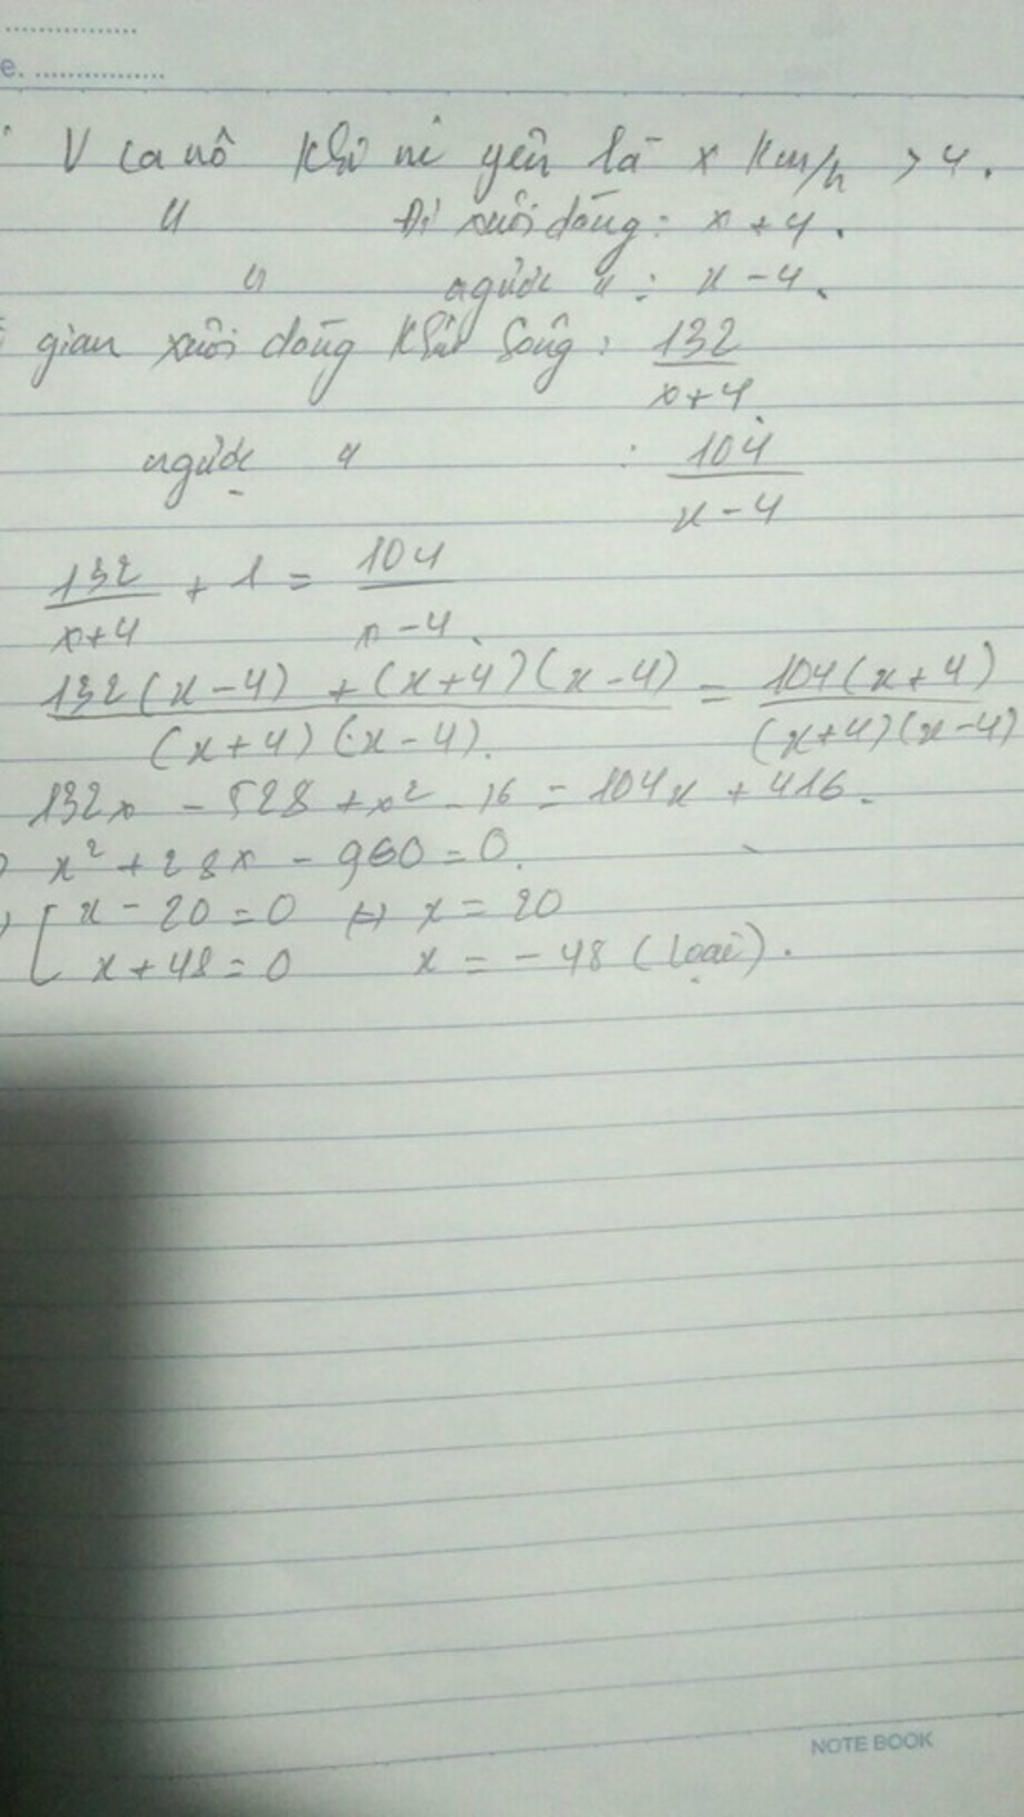 e. ................
V ca nô khi nc yên là x km/h > 4.
" Đi xuôi dòng: x + 4.
" ngược " : x - 4.
gian xuôi dòng khúc sông: 132/(x+4)
ngược " : 104/(x-4)
132/(x+4) + 1 = 104/(x-4)
(132(x-4) + (x+4)(x-4))/((x+4)(x-4)) = 104(x+4)/((x+4)(x-4))
132x - 528 + x² - 16 = 104x + 416.
x² + 28x - 960 = 0.
[ x - 20 = 0 ⇔ x = 20
x + 48 = 0 x = -48 (loại).
NOTE BOOK